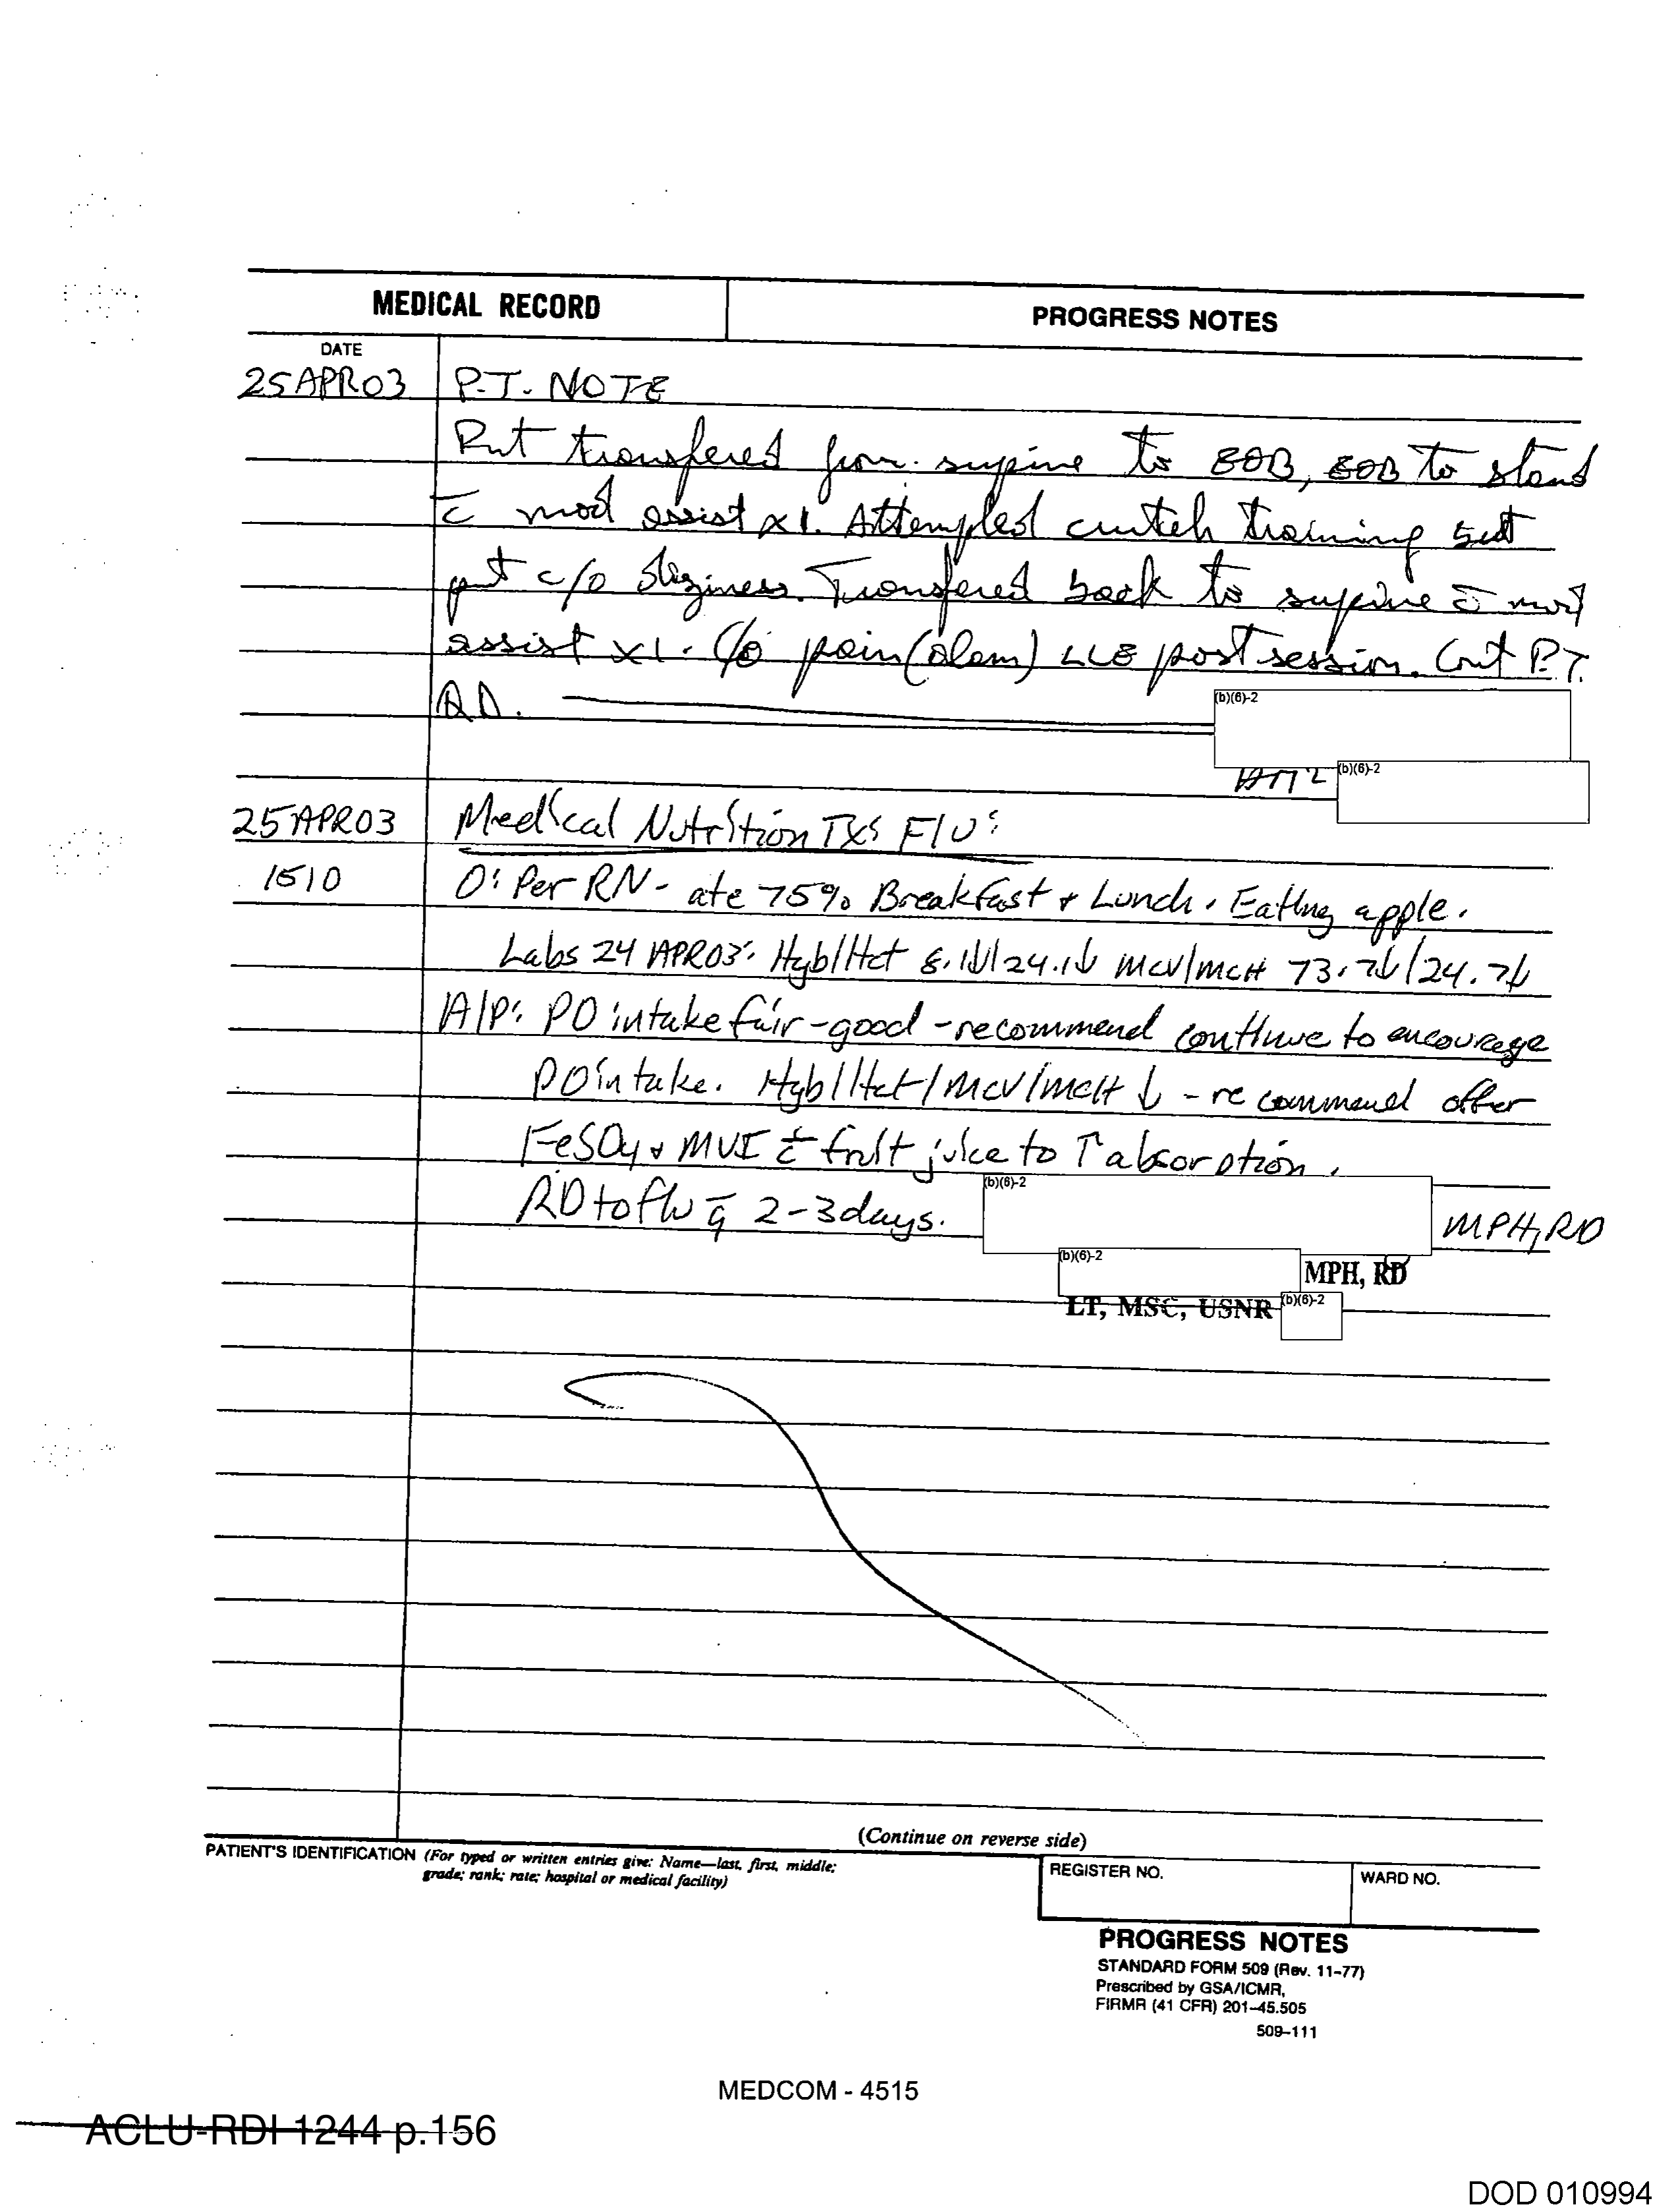 MEDICAL RECORD
PROGRESS NOTES
DATE
25APR03 P.T. NOTE
transfered from supine to EOB, EOB to stand
c̄ mod assist x1. Attempted crutch training but
pnt c/o diziness. Transfered back to supine c̄ mod
assist x1. C/o pain LLE post session. Cont P.T.
(b)(6)-2
HM2 (b)(6)-2
25APR03 Medical Nutrition Tx: F/U:
1510 O: Per RN - ate 75% Breakfast + Lunch. Eating apple.
Labs 24 APR03: Hgb/Hct 8.1↓/24.1↓ MCV/MCH 73.7↓/24.7↓
A/P: PO intake fair-good - recommend continue to encourage
PO intake. Hgb/Hct/MCV/MCH ↓ - recommend offer
FeSO4 + MVI c̄ fruit juice to ↑ absorption.
RD to f/u q̄ 2-3 days. (b)(6)-2 MPH, RD
(b)(6)-2 MPH, RD
LT, MSC, USNR (b)(6)-2
(Continue on reverse side)
PATIENT'S IDENTIFICATION (For typed or written entries give: Name—last, first, middle;
grade; rank; rate; hospital or medical facility)
REGISTER NO.
WARD NO.
PROGRESS NOTES
STANDARD FORM 509 (Rev. 11-77)
Prescribed by GSA/ICMR,
FIRMR (41 CFR) 201-45.505
509-111
MEDCOM - 4515
ACLU-RDI 1244 p.156
DOD 010994